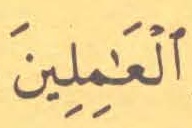 ٱلْعَٰمِلِينَ